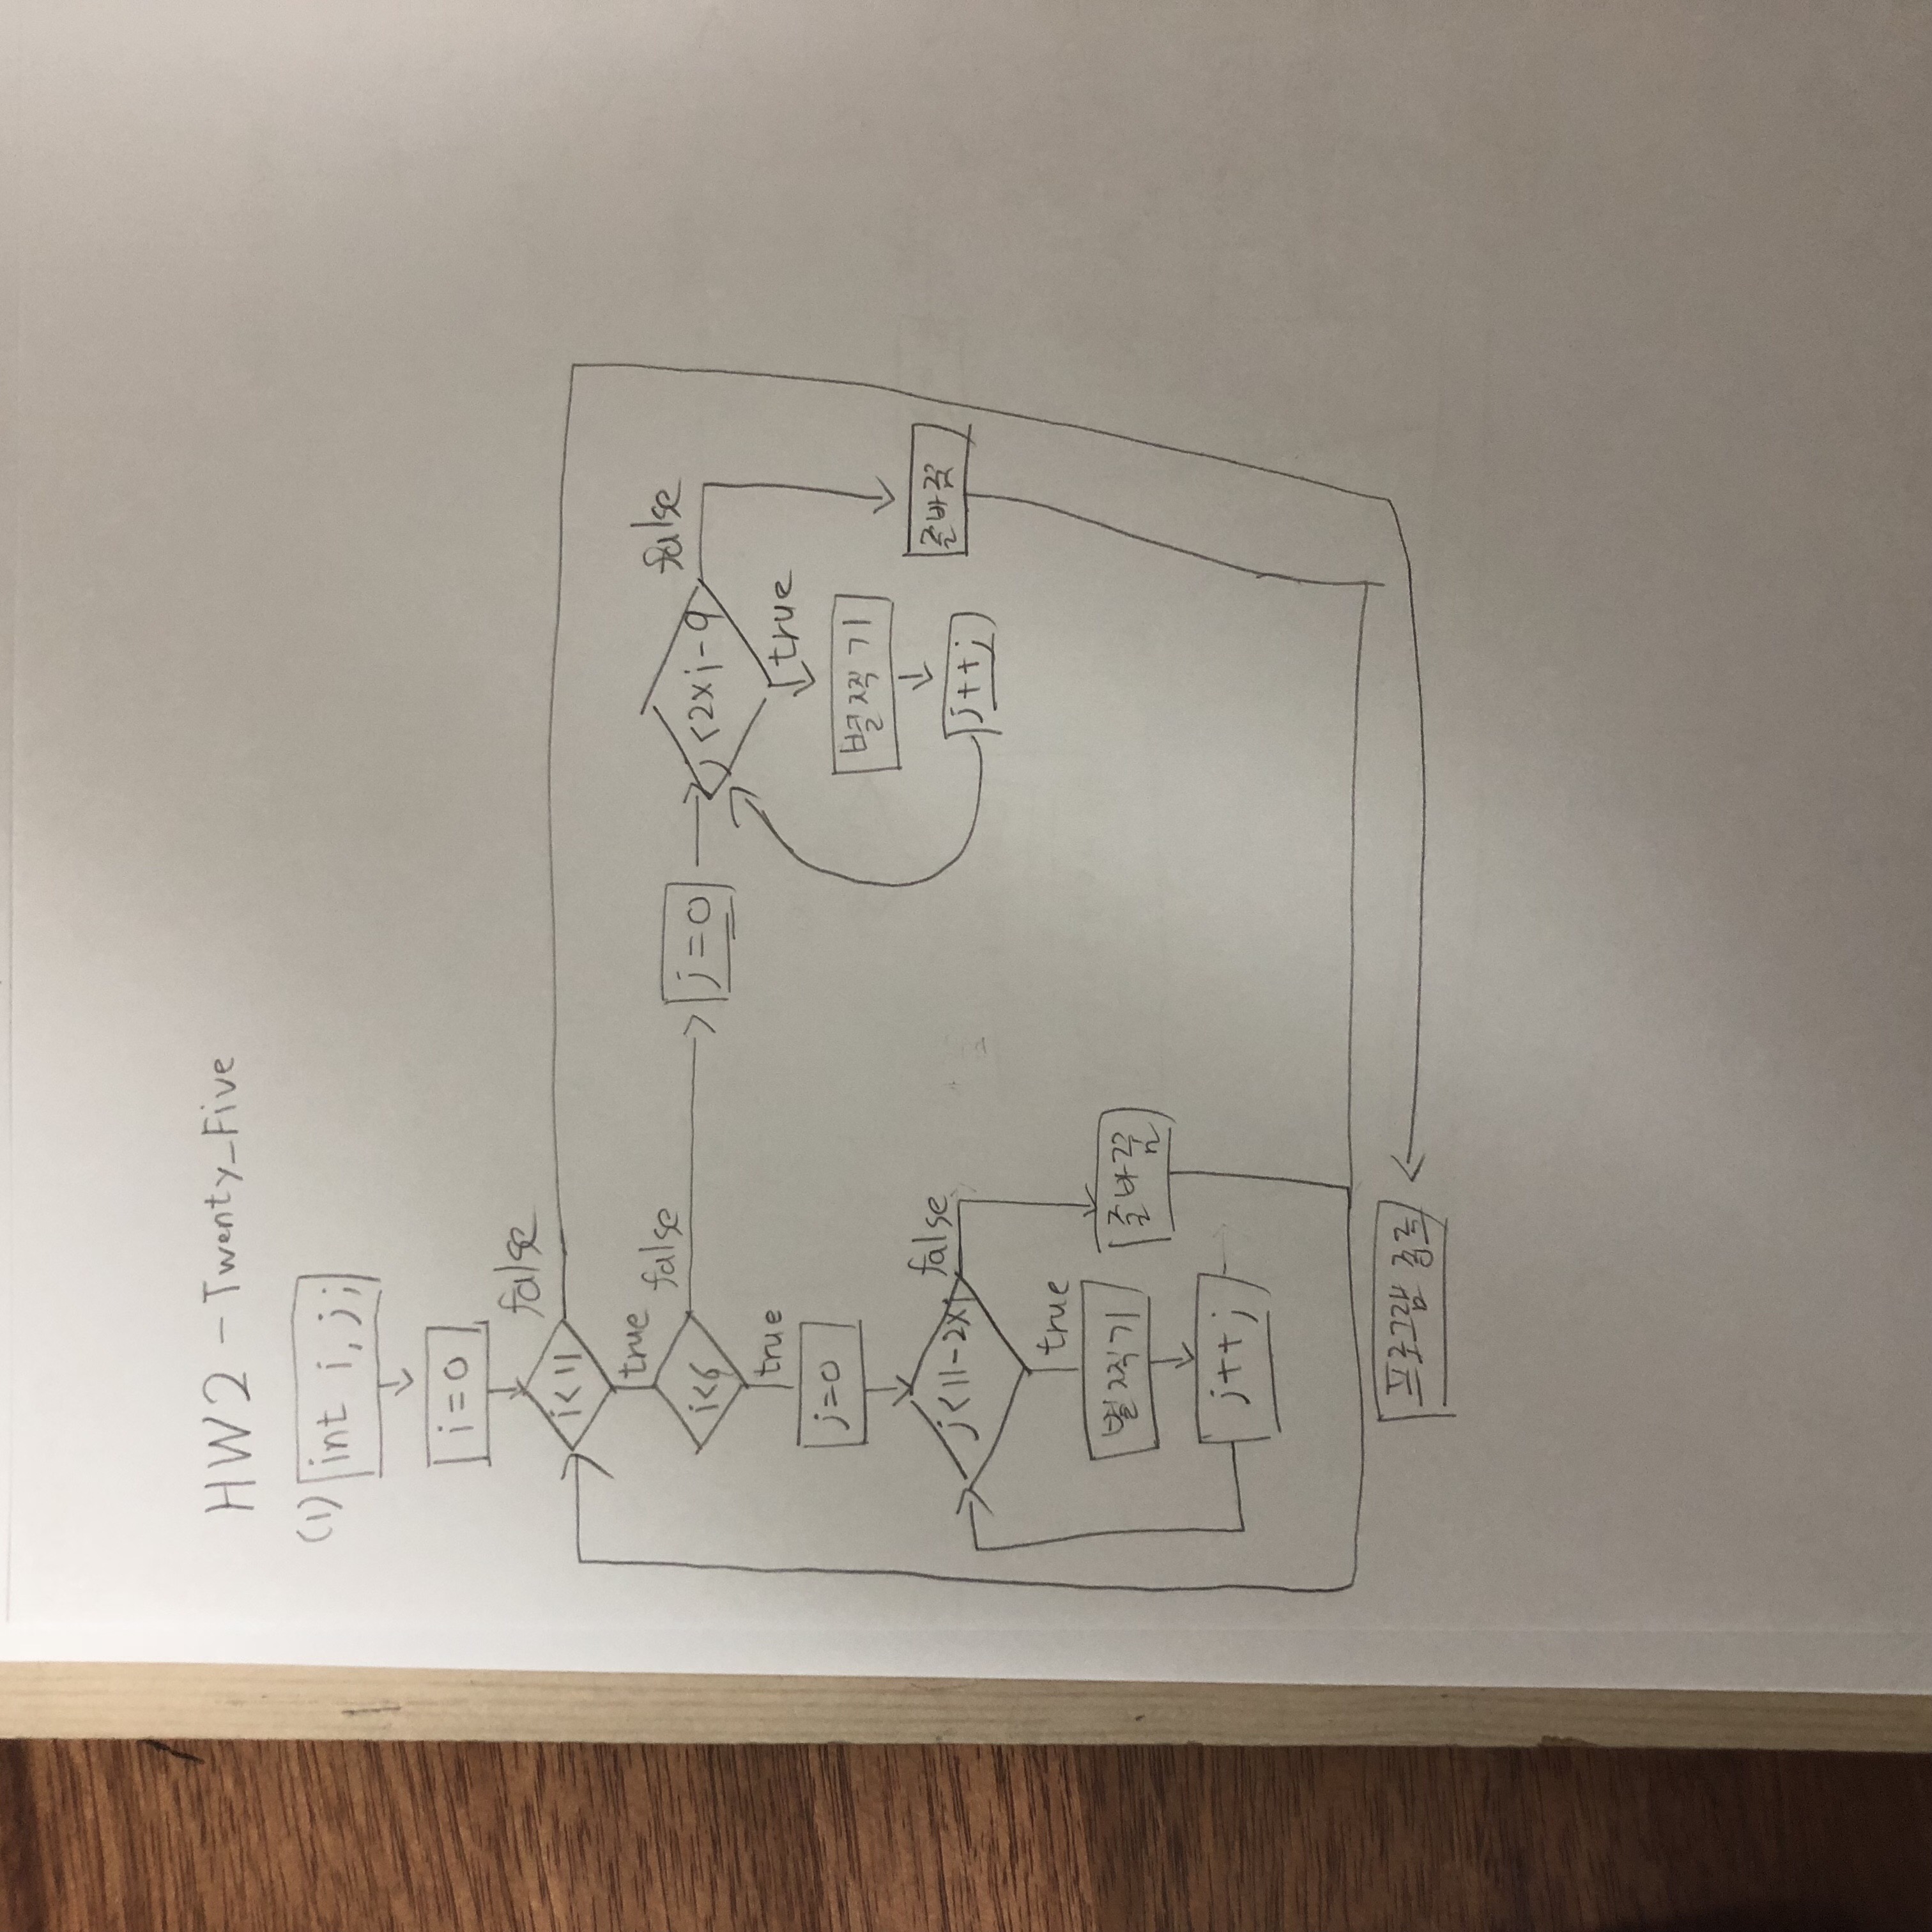 HW2 - Twenty_Five
(1) int i, j;
i=0
i<11
false
true
i<6
false
true
j=0
j<2×i-9
false
true
별찍기
j++;
줄바꿈
j=0
j<11-2×i
false
true
별찍기
줄바꿈
j++;
프로그램 종료